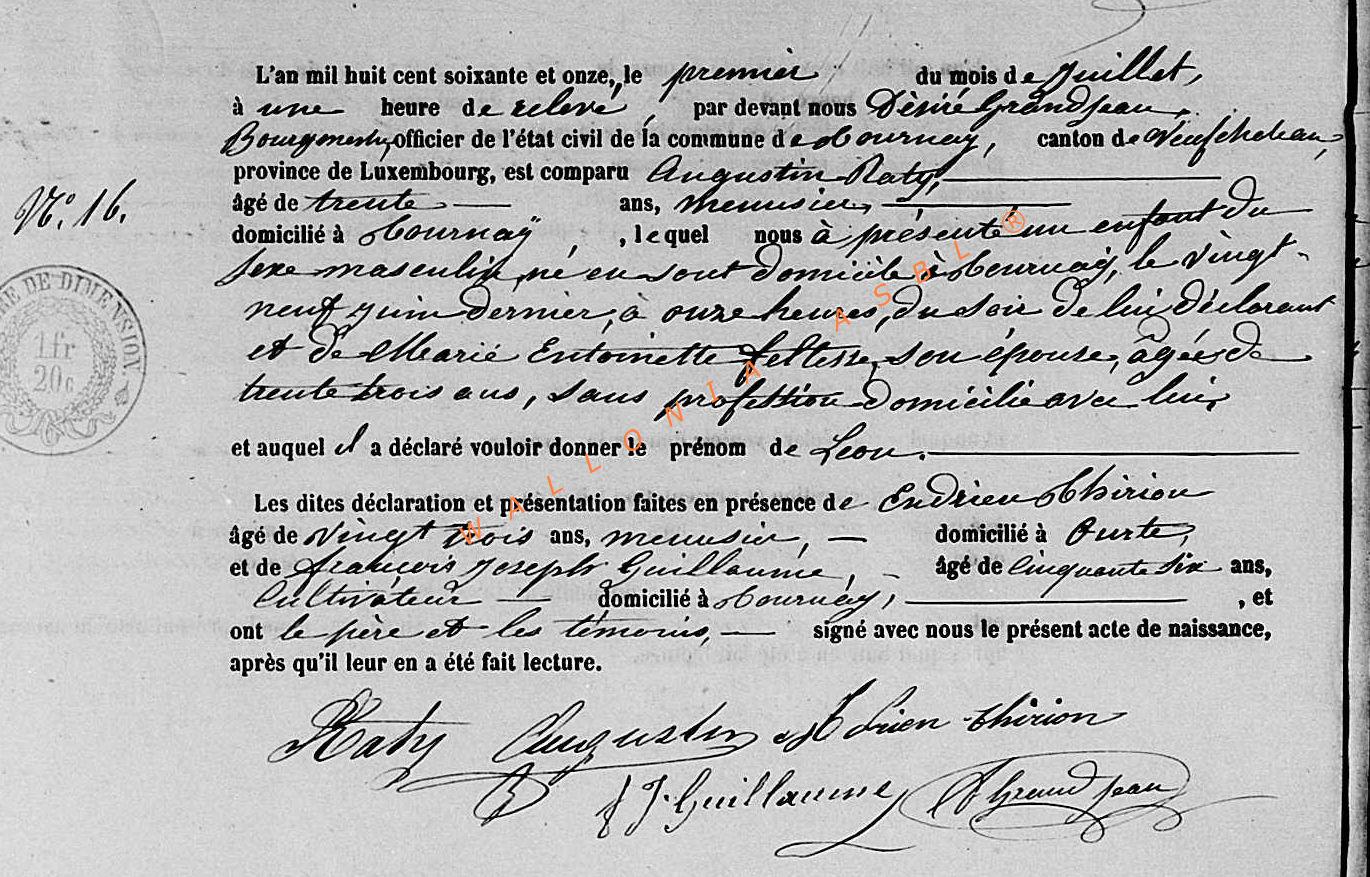 L'an mil huit cent soixante et onze, le premier du mois de Juillet,
à une heure de relevé, par devant nous Désiré Grandjean,
Bourgmestre, officier de l'état civil de la commune de Tournay, canton de Neufchateau,
province de Luxembourg, est comparu Augustin Raty,
N.° 16.
âgé de trente ans, menusier,
domicilié à Tournaÿ, , lequel nous à présenté un enfant du
sexe masculin, né en sont domicile à Tournaÿ, le vingt-
neuf juin dernier, à onze heures, du soir de lui déclarant
et de Marie Entoinette Feltesse, son épouse, âgée de
trente trois ans, sans profession domicilié avec lui,
et auquel il a déclaré vouloir donner le prénom de Leon.
Les dites déclaration et présentation faites en présence de Endrien Thirion
âgé de vingt trois ans, menusier, domicilié à Ourte,
et de françois Joseph Guillaume, âgé de cinquante six ans,
Cultivateur domicilié à Tournay, , et
ont le père et les témoins, signé avec nous le présent acte de naissance,
après qu'il leur en a été fait lecture.
Raty Augustin Adrien thirion
f J. Guillaume D Grandjean
RE DE DIMENSION
1fr
20c
WALLONIA ASBL ®